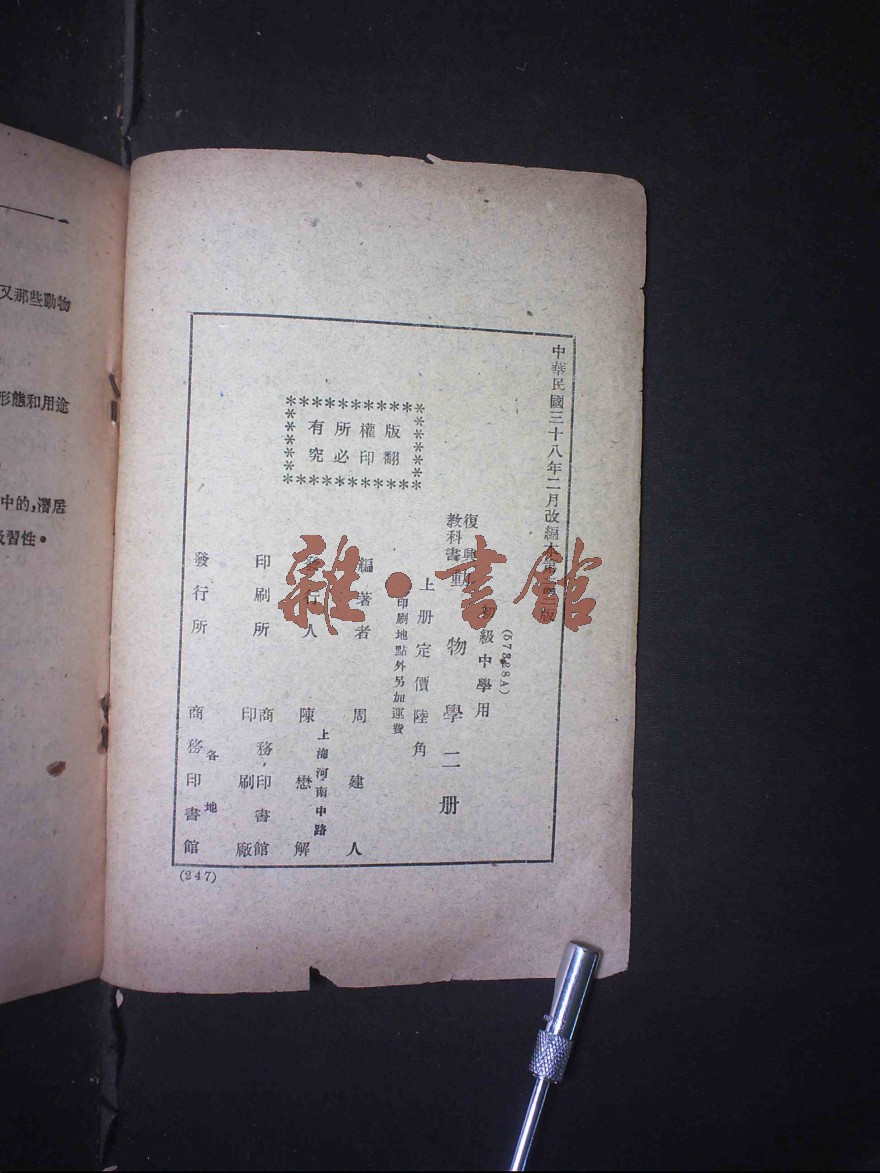 中華民國三十八年二月改編本第 版
(57328A)
初級中學用
復興
教科書
動物學二册
上册定價陸角
印刷地點外另加運費
版權所有
翻印必究
編著者 周建人
發行人 陳懋解
上海河南中路
印刷所 商務印書館
印刷廠
發行所 各地
商務印書館
(247)
雜·書館
又那些動物
形態和用途
中的,潛居
習性。